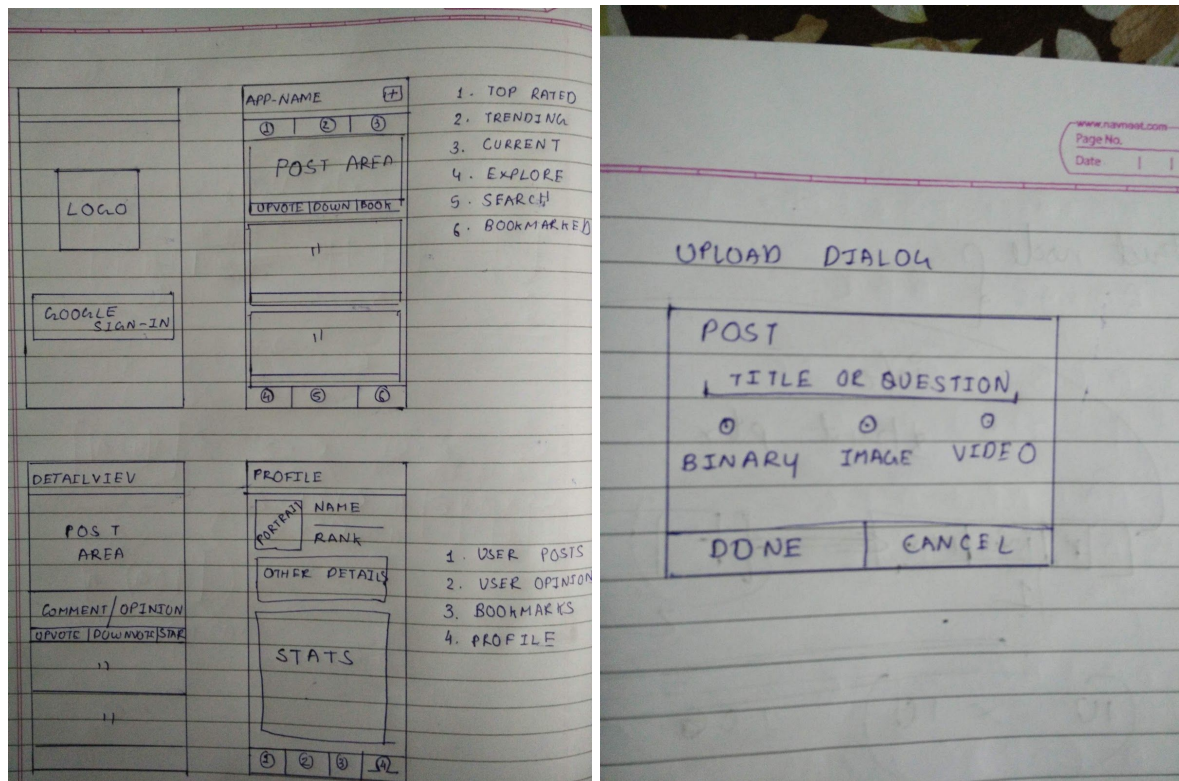 LOGO
GOOGLE
SIGN-IN
APP-NAME +
1 2 3
POST AREA
UPVOTE | DOWN | BOOK
"
"
4 5 6
1. TOP RATED
2. TRENDING
3. CURRENT
4. EXPLORE
5. SEARCH
6. BOOKMARKED
DETAILVIEV
POST
AREA
COMMENT/OPINION
UPVOTE | DOWNVOTE | STAR
"
"
PROFILE
PORTRAIT
NAME
RANK
OTHER DETAILS
STATS
1 2 3 4
1. USER POSTS
2. USER OPINION
3. BOOKMARKS
4. PROFILE
www.navneet.com
Page No.
Date
UPLOAD DIALOG
POST
TITLE OR QUESTION
BINARY IMAGE VIDEO
DONE CANCEL